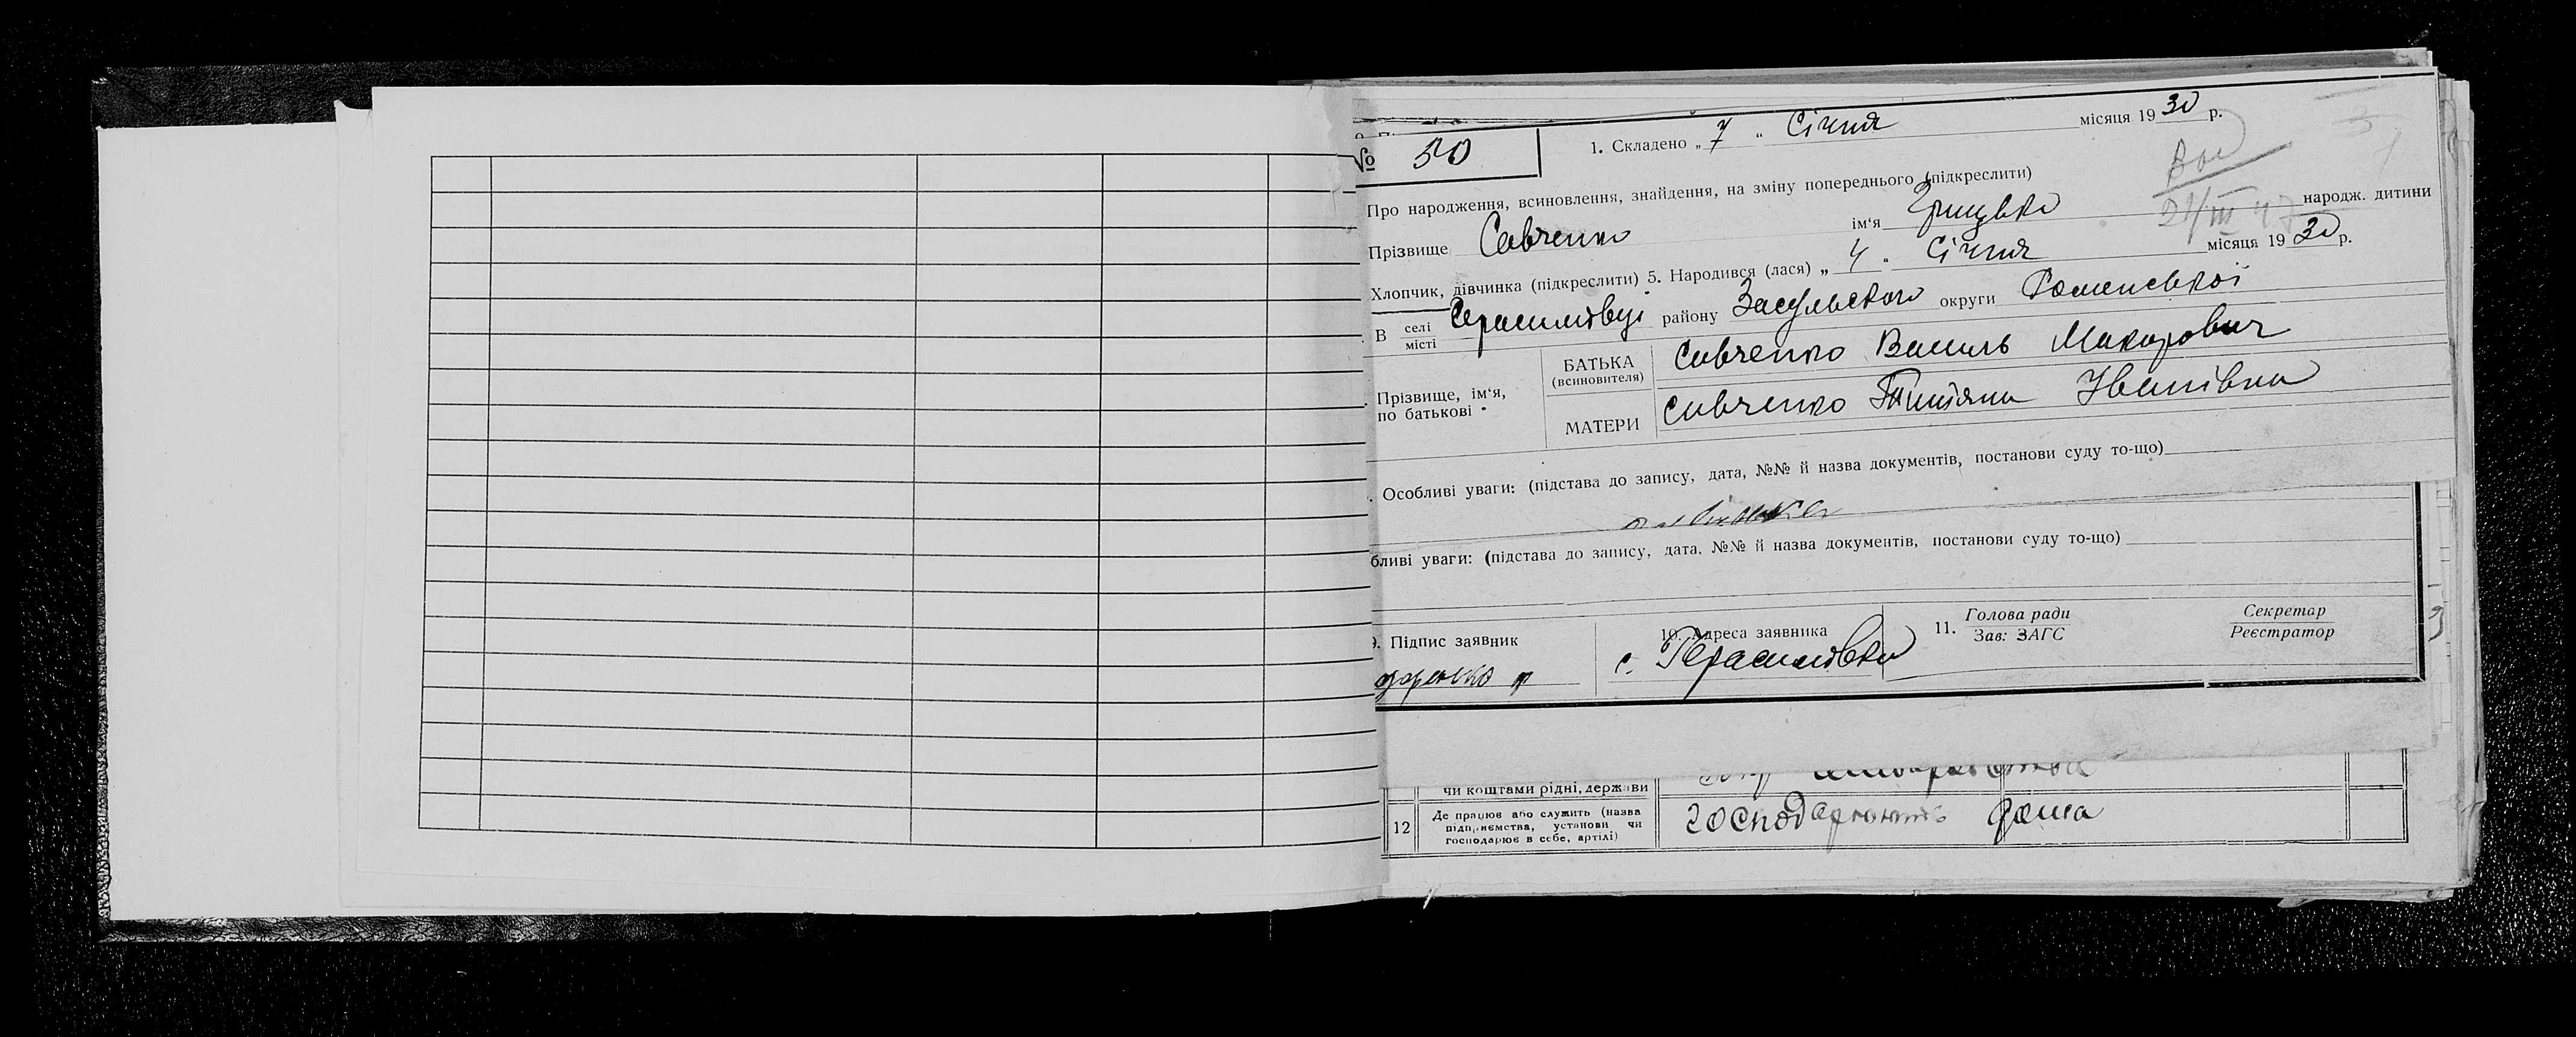 № 50
1. Складено „ 7 “ Січня місяця 1930 р.
Про народження, всиновлення, знайдення, на зміну попереднього (підкреслити)
Прізвище Савченко ім‘я Грицько народж. дитини
21/III 47
Хлопчик, дівчинка (підкреслити) 5. Народився (лася) „ 4 “ Січня місяця 1930 р.
В селі місті Герасимовці району Засульського округи Роменської
Прізвище, ім‘я, по батькові
БАТЬКА (всиновителя) Савченко Василь Макарович
МАТЕРИ Савченко Титяна Іванівна
. Особливі уваги: (підстава до запису, дата, №№ й назва документів, постанови суду то-що)
бливі уваги: (підстава до запису, дата, №№ й назва документів, постанови суду то-що)
9. Підпис заявник
10. Адреса заявника
с. Герасимовка
11. Голова ради
Зав: ЗАГС
Секретар
Реєстратор
чи коштами рідні, держави
12 Де працює або служить (назва
підприємства, установи чи
господарює в себе, артілі)
господарюють дома